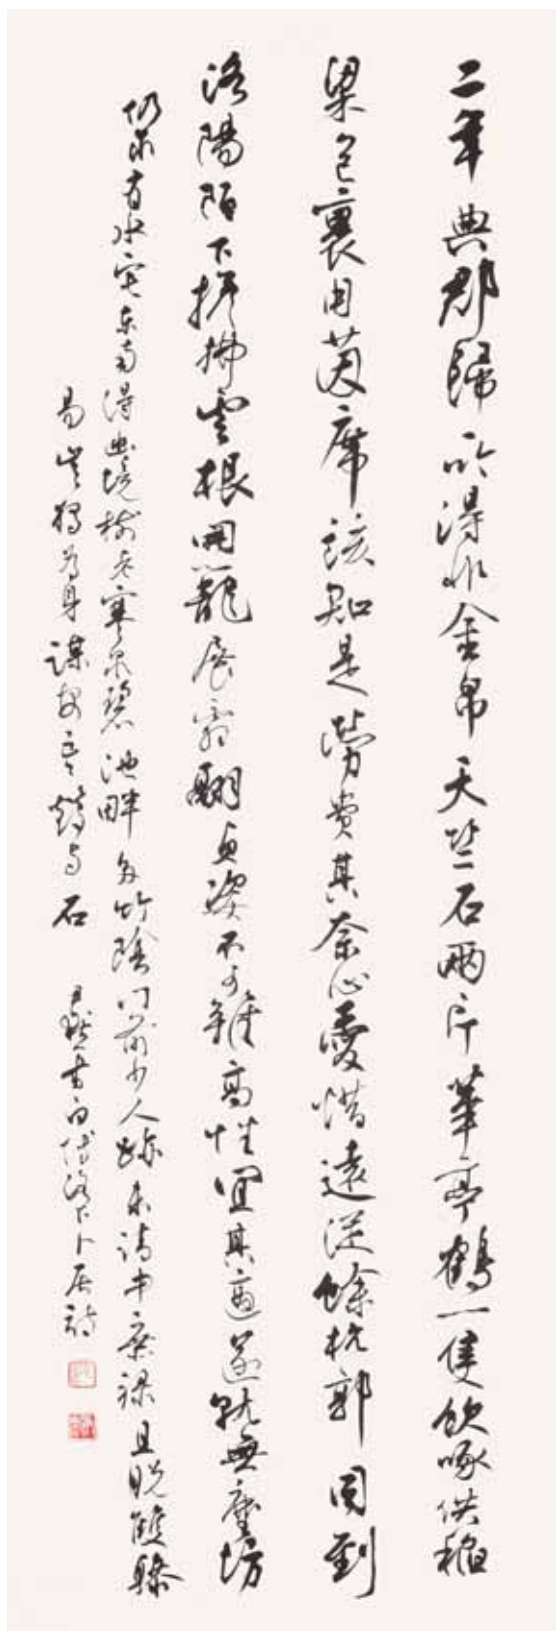 二年典郡歸所得非金帛天竺石兩片華亭鶴一隻飲啄供稻
梁包裹用茵席誠知是勞費其奈心愛惜遠從餘杭郭同到
洛陽陌下擔拂雲根開籠展霜翮貞姿不可雜高性宜其適遂就無塵坊
仍求有水宅東南得幽境樹老寒泉碧池畔多竹陰門前少人跡未請中庶祿且脫雙驂
易豈獨為身謀安吾鶴與石 書白傅洛下卜居詩